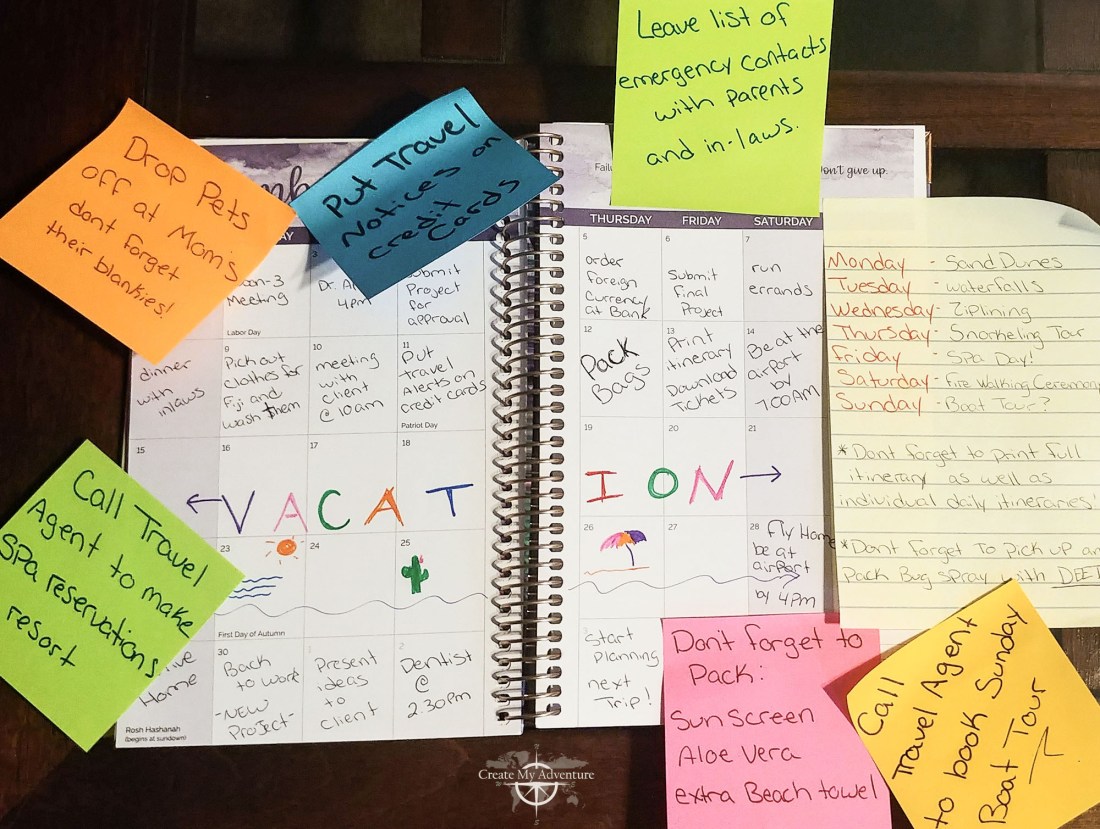 Leave list of
emergency contacts
with parents
and in-laws.
Drop Pets
off at Mom's
dont forget
their blankies!
Put Travel
Notices on
credit
Cards
Don't give up.
THURSDAY
FRIDAY
SATURDAY
Meeting
Labor Day
3
Dr.
4pm
Submit
Project
for
approval
5
order
foreign
Currency
at Bank
6
Submit
final
Project
7
run
errands
dinner
with
inlaws
9
Pick out
clothes for
Fiji and
wash them
10
meeting
with
client
@ 10am
11
Put
travel
Alerts on
credit cards
Patriot Day
12
Pack
Bags
13
Print
itinerary
Download
Tickets
14
Be at the
airport
by
7:00AM
15
16
17
18
19
20
21
VACATION
23
24
25
26
27
28
Fly Home
be at
airport
by 4pm
First Day of Autumn
Home
Rosh Hashanah
(begins at sundown)
30
Back
to work
-NEW
Project-
1
Present
ideas
to
client
2
Dentist
@
2:30pm
Start
planning
next
Trip!
Monday - Sand Dunes
Tuesday - waterfalls
Wednesday - Ziplining
Thursday - Snorkeling Tour
Friday - Spa Day!
Saturday - Fire Walking Ceremony
Sunday - Boat Tour?
*Dont forget to print full
itinerary as well as
individual daily itineraries!
*Dont forget To pick up an
Pack Bug spray with DEET
Call Travel
Agent to make
Spa reservations
resort
Don't forget to
Pack:
Sun Screen
Aloe Vera
extra Beach towel
Call
Travel Agent
to book Sunday
Boat Tour
Create My Adventure